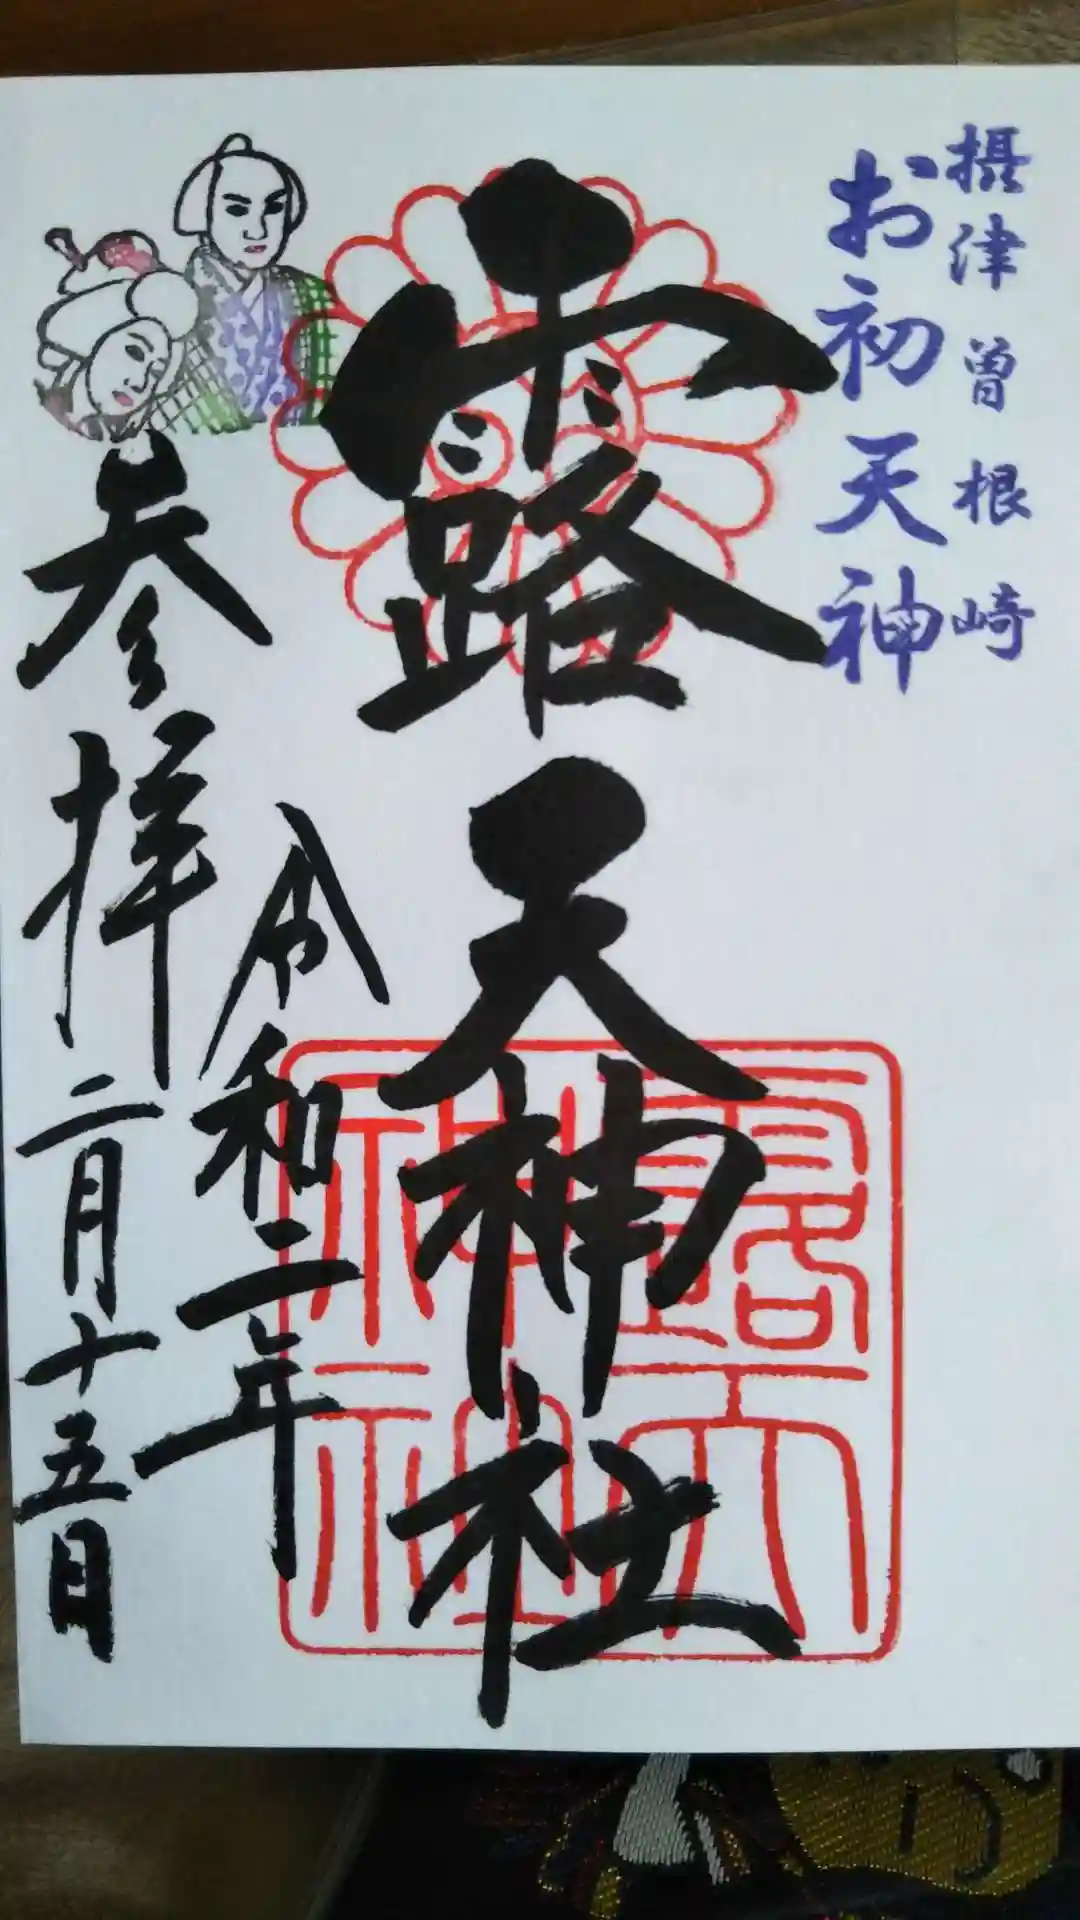 摂津曽根崎
お初天神
露天神社
令和二年
参拝二月十五日
露天
神社